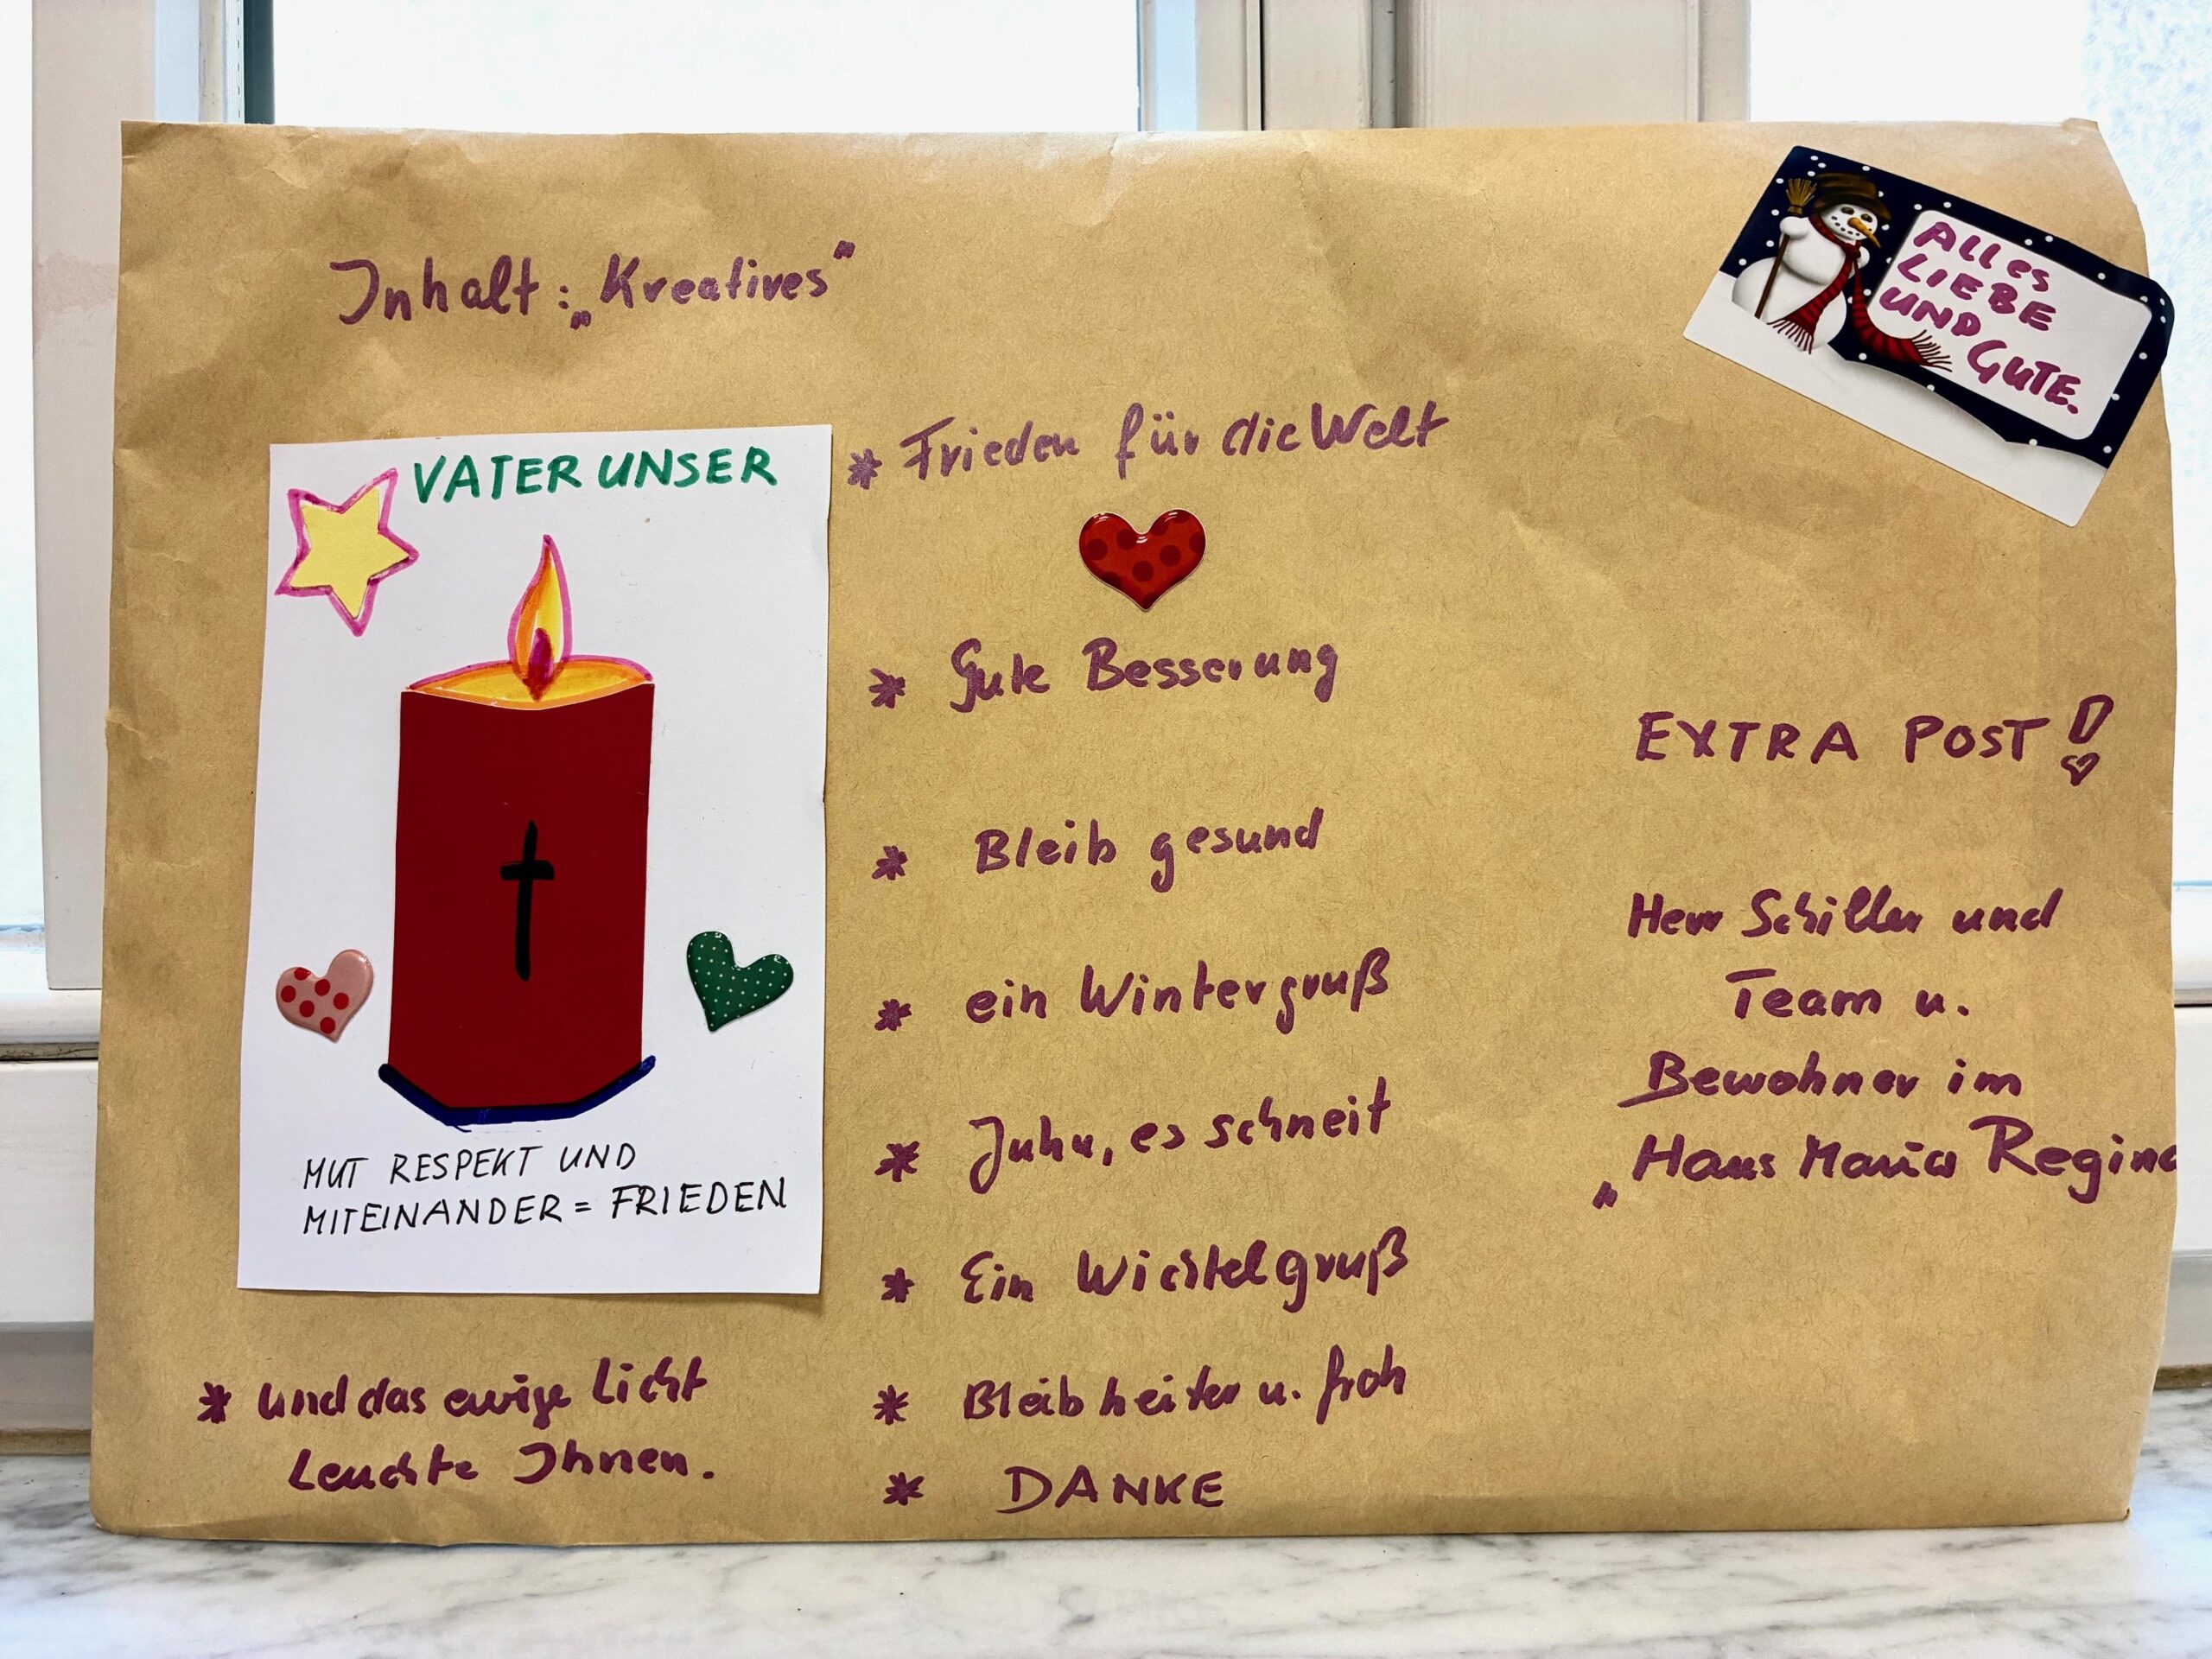 Inhalt: „Kreatives"
ALLES
LIEBE
UND
GUTE.
VATER UNSER
MUT RESPEKT UND
MITEINANDER = FRIEDEN
* und das ewige Licht
Leuchte Ihnen.
* Frieden für die Welt
* Gute Besserung
* Bleib gesund
* ein Wintergruß
* Juhu, es schneit
* Ein Wichtelgruß
* Bleib heiter u. froh
* DANKE
EXTRA POST!
Herr Schiller und
Team u.
Bewohner im
„Haus Maria Regina